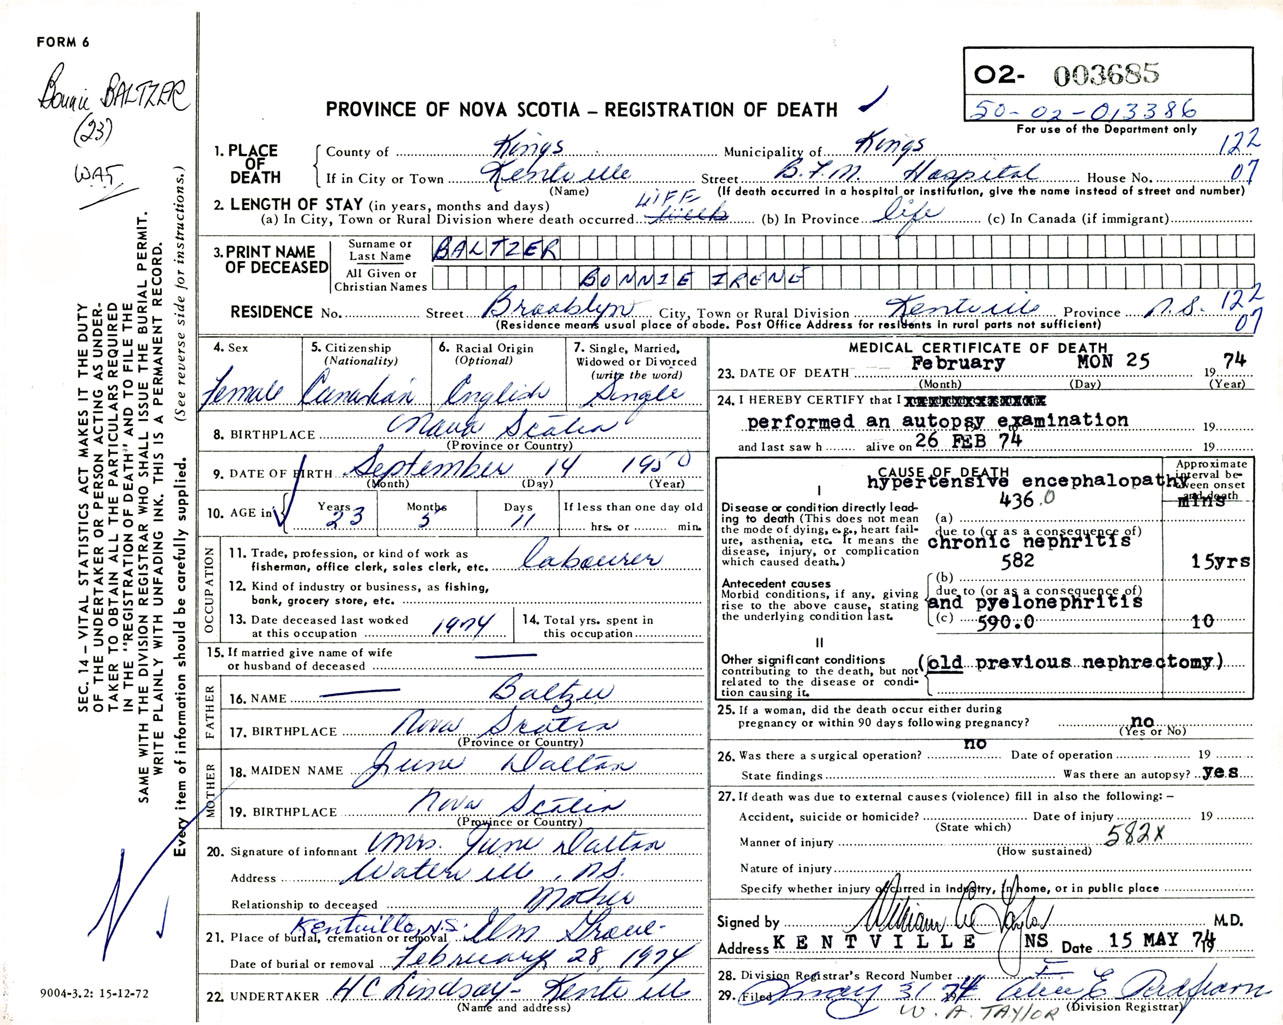 FORM 6
Bonnie BALTZER
(23)
WAT
O2- 003685
50-02-013386
For use of the Department only
PROVINCE OF NOVA SCOTIA – REGISTRATION OF DEATH ✓
1. PLACE OF DEATH
County of Kings Municipality of Kings 122
If in City or Town Kentville Street B.F.M. Hospital House No. 07
(Name) (If death occurred in a hospital or institution, give the name instead of street and number)
2. LENGTH OF STAY (in years, months and days)
(a) In City, Town or Rural Division where death occurred LIFE (b) In Province life (c) In Canada (if immigrant)
3. PRINT NAME OF DECEASED
Surname or Last Name BALTZER
All Given or Christian Names BONNIE IRENE
RESIDENCE No. Street Brooklyn City, Town or Rural Division Kentville Province N.S. 122
07
(Residence means usual place of abode. Post Office Address for residents in rural parts not sufficient)
4. Sex Female
5. Citizenship (Nationality) Canadian
6. Racial Origin (Optional) English
7. Single, Married, Widowed or Divorced (write the word) Single
8. BIRTHPLACE Nova Scotia
(Province or Country)
9. DATE OF BIRTH September 14 1950
(Month) (Day) (Year)
10. AGE in Years 23 Months 5 Days 11 If less than one day old hrs. or min.
OCCUPATION
11. Trade, profession, or kind of work as fisherman, office clerk, sales clerk, etc. labourer
12. Kind of industry or business, as fishing, bank, grocery store, etc.
13. Date deceased last worked at this occupation 1974
14. Total yrs. spent in this occupation
15. If married give name of wife or husband of deceased —
FATHER
16. NAME — Baltzer
17. BIRTHPLACE Nova Scotia
(Province or Country)
MOTHER
18. MAIDEN NAME June Dalton
19. BIRTHPLACE Nova Scotia
(Province or Country)
20. Signature of informant Mrs. June Dalton
Address Waterville, N.S.
Relationship to deceased Mother
Kentville, N.S.
21. Place of burial, cremation or removal Elm Grove
Date of burial or removal February 28, 1974
22. UNDERTAKER H C Lindsay - Kentville
(Name and address)
MEDICAL CERTIFICATE OF DEATH
23. DATE OF DEATH February MON 25 19 74
(Month) (Day) (Year)
24. I HEREBY CERTIFY that I
performed an autopsy examination 19
and last saw h alive on 26 FEB 74 19
CAUSE OF DEATH
Approximate interval between onset and death
hypertensive encephalopathy
I
436.0 mins
Disease or condition directly leading to death (This does not mean the mode of dying, e.g., heart failure, asthenia, etc. It means the disease, injury, or complication which caused death.)
(a)
due to (or as a consequence of)
chronic nephritis
582 15yrs
Antecedent causes
Morbid conditions, if any, giving rise to the above cause, stating the underlying condition last.
(b)
due to (or as a consequence of)
and pyelonephritis
(c) 590.0 10
II
Other significant conditions contributing to the death, but not related to the disease or condition causing it.
(old previous nephrectomy)
25. If a woman, did the death occur either during pregnancy or within 90 days following pregnancy? no
(Yes or No)
26. Was there a surgical operation? no Date of operation 19
State findings Was there an autopsy? yes
27. If death was due to external causes (violence) fill in also the following: –
Accident, suicide or homicide? Date of injury 19
(State which)
Manner of injury 582x
(How sustained)
Nature of injury
Specify whether injury occurred in Industry, in home, or in public place
Signed by William A Taylor M.D.
Address KENTVILLE NS Date 15 MAY 74
28. Division Registrar's Record Number
29. Filed May 31 74
(Division Registrar)
W. A. TAYLOR
SEC. 14 – VITAL STATISTICS ACT MAKES IT THE DUTY
OF THE UNDERTAKER OR PERSON ACTING AS UNDER-
TAKER TO OBTAIN ALL THE PARTICULARS REQUIRED
IN THE "REGISTRATION OF DEATH" AND TO FILE THE
SAME WITH THE DIVISION REGISTRAR WHO SHALL ISSUE THE BURIAL PERMIT.
WRITE PLAINLY WITH UNFADING INK. THIS IS A PERMANENT RECORD.
Every item of information should be carefully supplied. (See reverse side for instructions.)
9004-3.2: 15-12-72